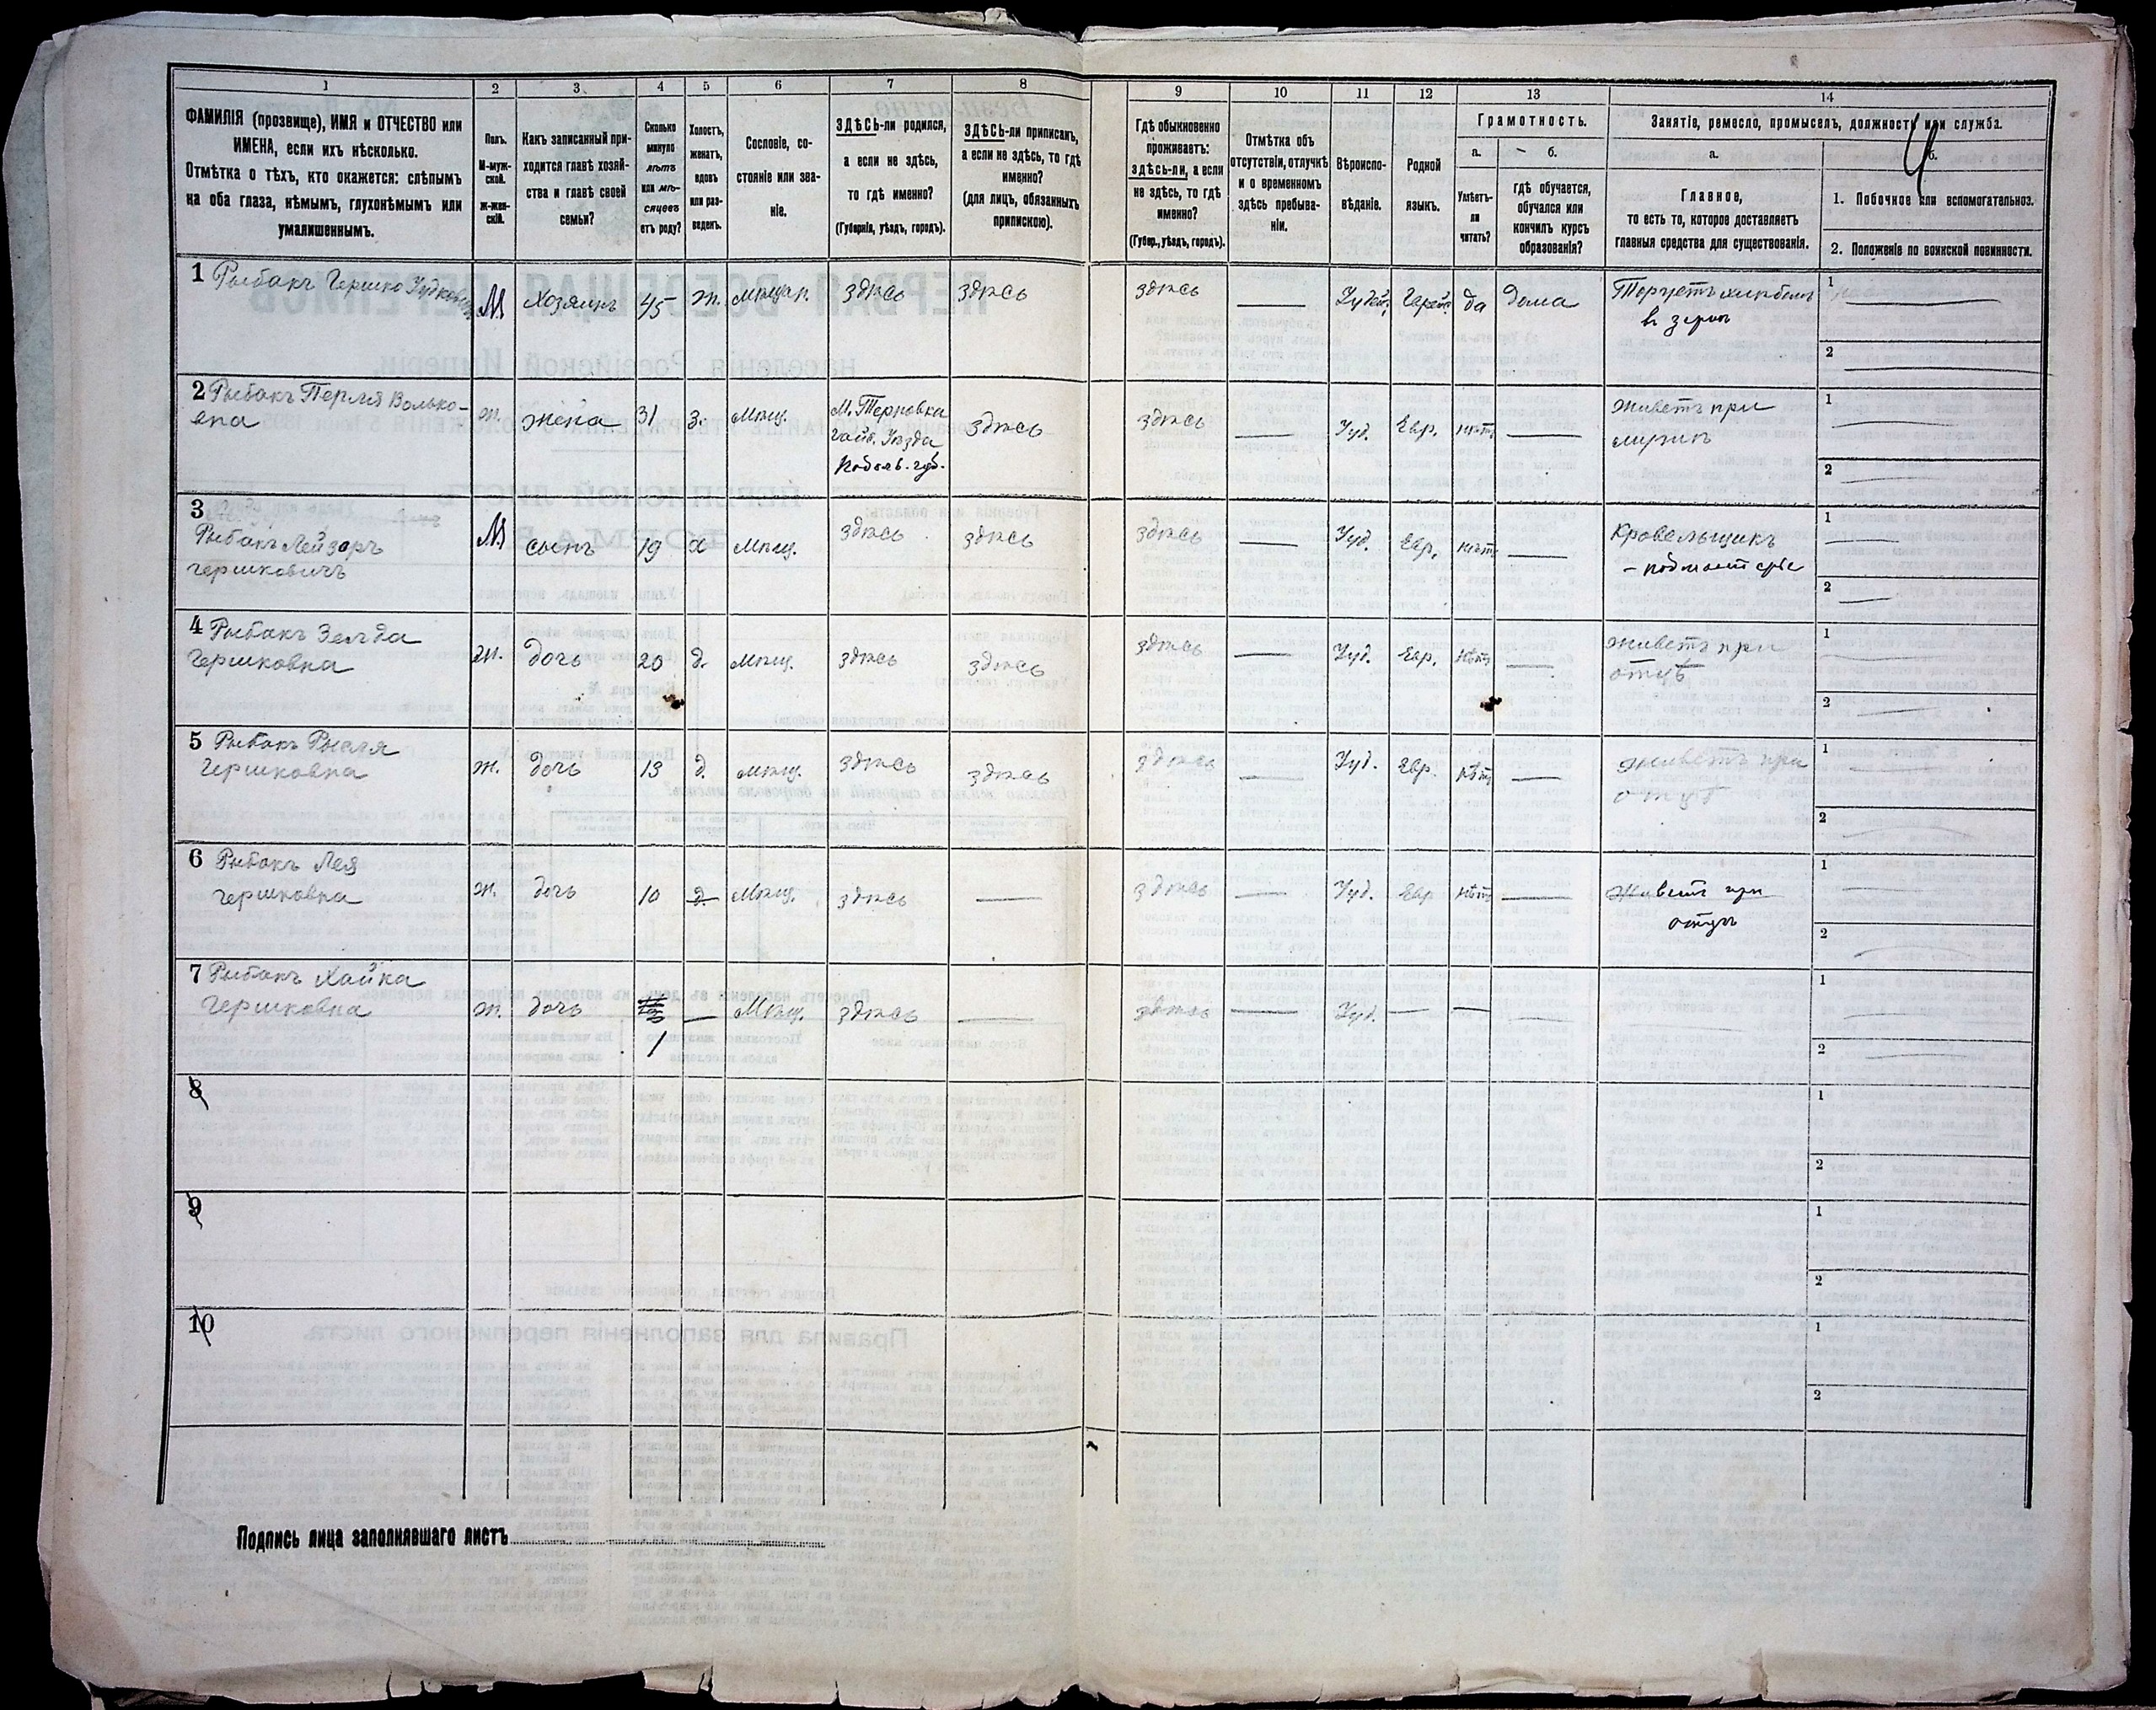 1 2 3 4 5 6 7 8 9 10 11 12 13 14
ФАМИЛІЯ (прозвище), ИМЯ и ОТЧЕСТВО или
ИМЕНА, если ихъ нѣсколько.
Отмѣтка о тѣхъ, кто окажется: слѣпымъ
на оба глаза, нѣмымъ, глухонѣмымъ или
умалишеннымъ.
Полъ.
М-муж-
ской.
Ж-жен-
скій.
Какъ записанный при-
ходится главѣ хозяй-
ства и главѣ своей
семьи?
Сколько
минуло
лѣтъ
или мѣ-
сяцевъ
отъ роду?
Холостъ,
женатъ,
вдовъ
или раз-
веденъ.
Сословіе, со-
стояніе или зва-
ніе.
ЗДѢСЬ-ли родился,
а если не здѣсь,
то гдѣ именно?
(Губернія, уѣздъ, городъ).
ЗДѢСЬ-ли приписанъ,
а если не здѣсь, то гдѣ
именно?
(для лицъ, обязанныхъ
припискою).
Гдѣ обыкновенно
проживаетъ:
здѣсь-ли, а если
не здѣсь, то гдѣ
именно?
(Губер., уѣздъ, городъ).
Отмѣтка объ
отсутствіи, отлучкѣ
и о временномъ
здѣсь пребыва-
ніи.
Вѣроиспо-
вѣданіе.
Родной
языкъ.
Грамотность.
а. б.
Умѣетъ-
ли
читать?
гдѣ обучается,
обучался или
кончилъ курсъ
образованія?
Занятіе, ремесло, промыселъ, должность или служба.
а. б.
Главное,
то есть то, которое доставляетъ
главныя средства для существованія.
1. Побочное или вспомогательное.
2. Положеніе по воинской повинности.
1 Рыбакъ Гершко
М Хозяинъ 45 ж. мѣщан. здѣсь здѣсь здѣсь — да дома Торгуетъ хлѣбомъ
въ зернѣ
1
2
2 Рыбакъ Перля Волько-
вна
ж. жена 31 з. мѣщ. М. Терновка
Гайс. Уѣзда
Подольс. губ.
здѣсь здѣсь — Іуд. Евр. нѣтъ — живетъ при
мужѣ
1
2
3
Рыбакъ Лейзоръ
Гершковичъ
М сынъ 19 х мѣщ. здѣсь здѣсь здѣсь — Іуд. Евр. нѣтъ — Кровельщикъ
– подмастерье
1
2
4 Рыбакъ Зельда
Гершковна
ж. дочь 20 д. мѣщ. здѣсь здѣсь здѣсь — Іуд. Евр. нѣтъ — живетъ при
отцѣ
1
2
5 Рыбакъ Рысля
Гершковна
ж. дочь 13 д. мѣщ. здѣсь здѣсь здѣсь — Іуд. Евр. нѣтъ — живетъ при
отцѣ
1
2
6 Рыбакъ Лея
Гершковна
ж. дочь 10 д. мѣщ. здѣсь — здѣсь — Іуд. Евр нѣтъ — Живетъ при
отцѣ
1
2
7 Рыбакъ Хайка
Гершковна
ж. дочь 1 — мѣщ. здѣсь — здѣсь — Іуд. — —
1
2
8
1
2
9
1
2
10
1
2
Подпись лица заполнявшаго листъ